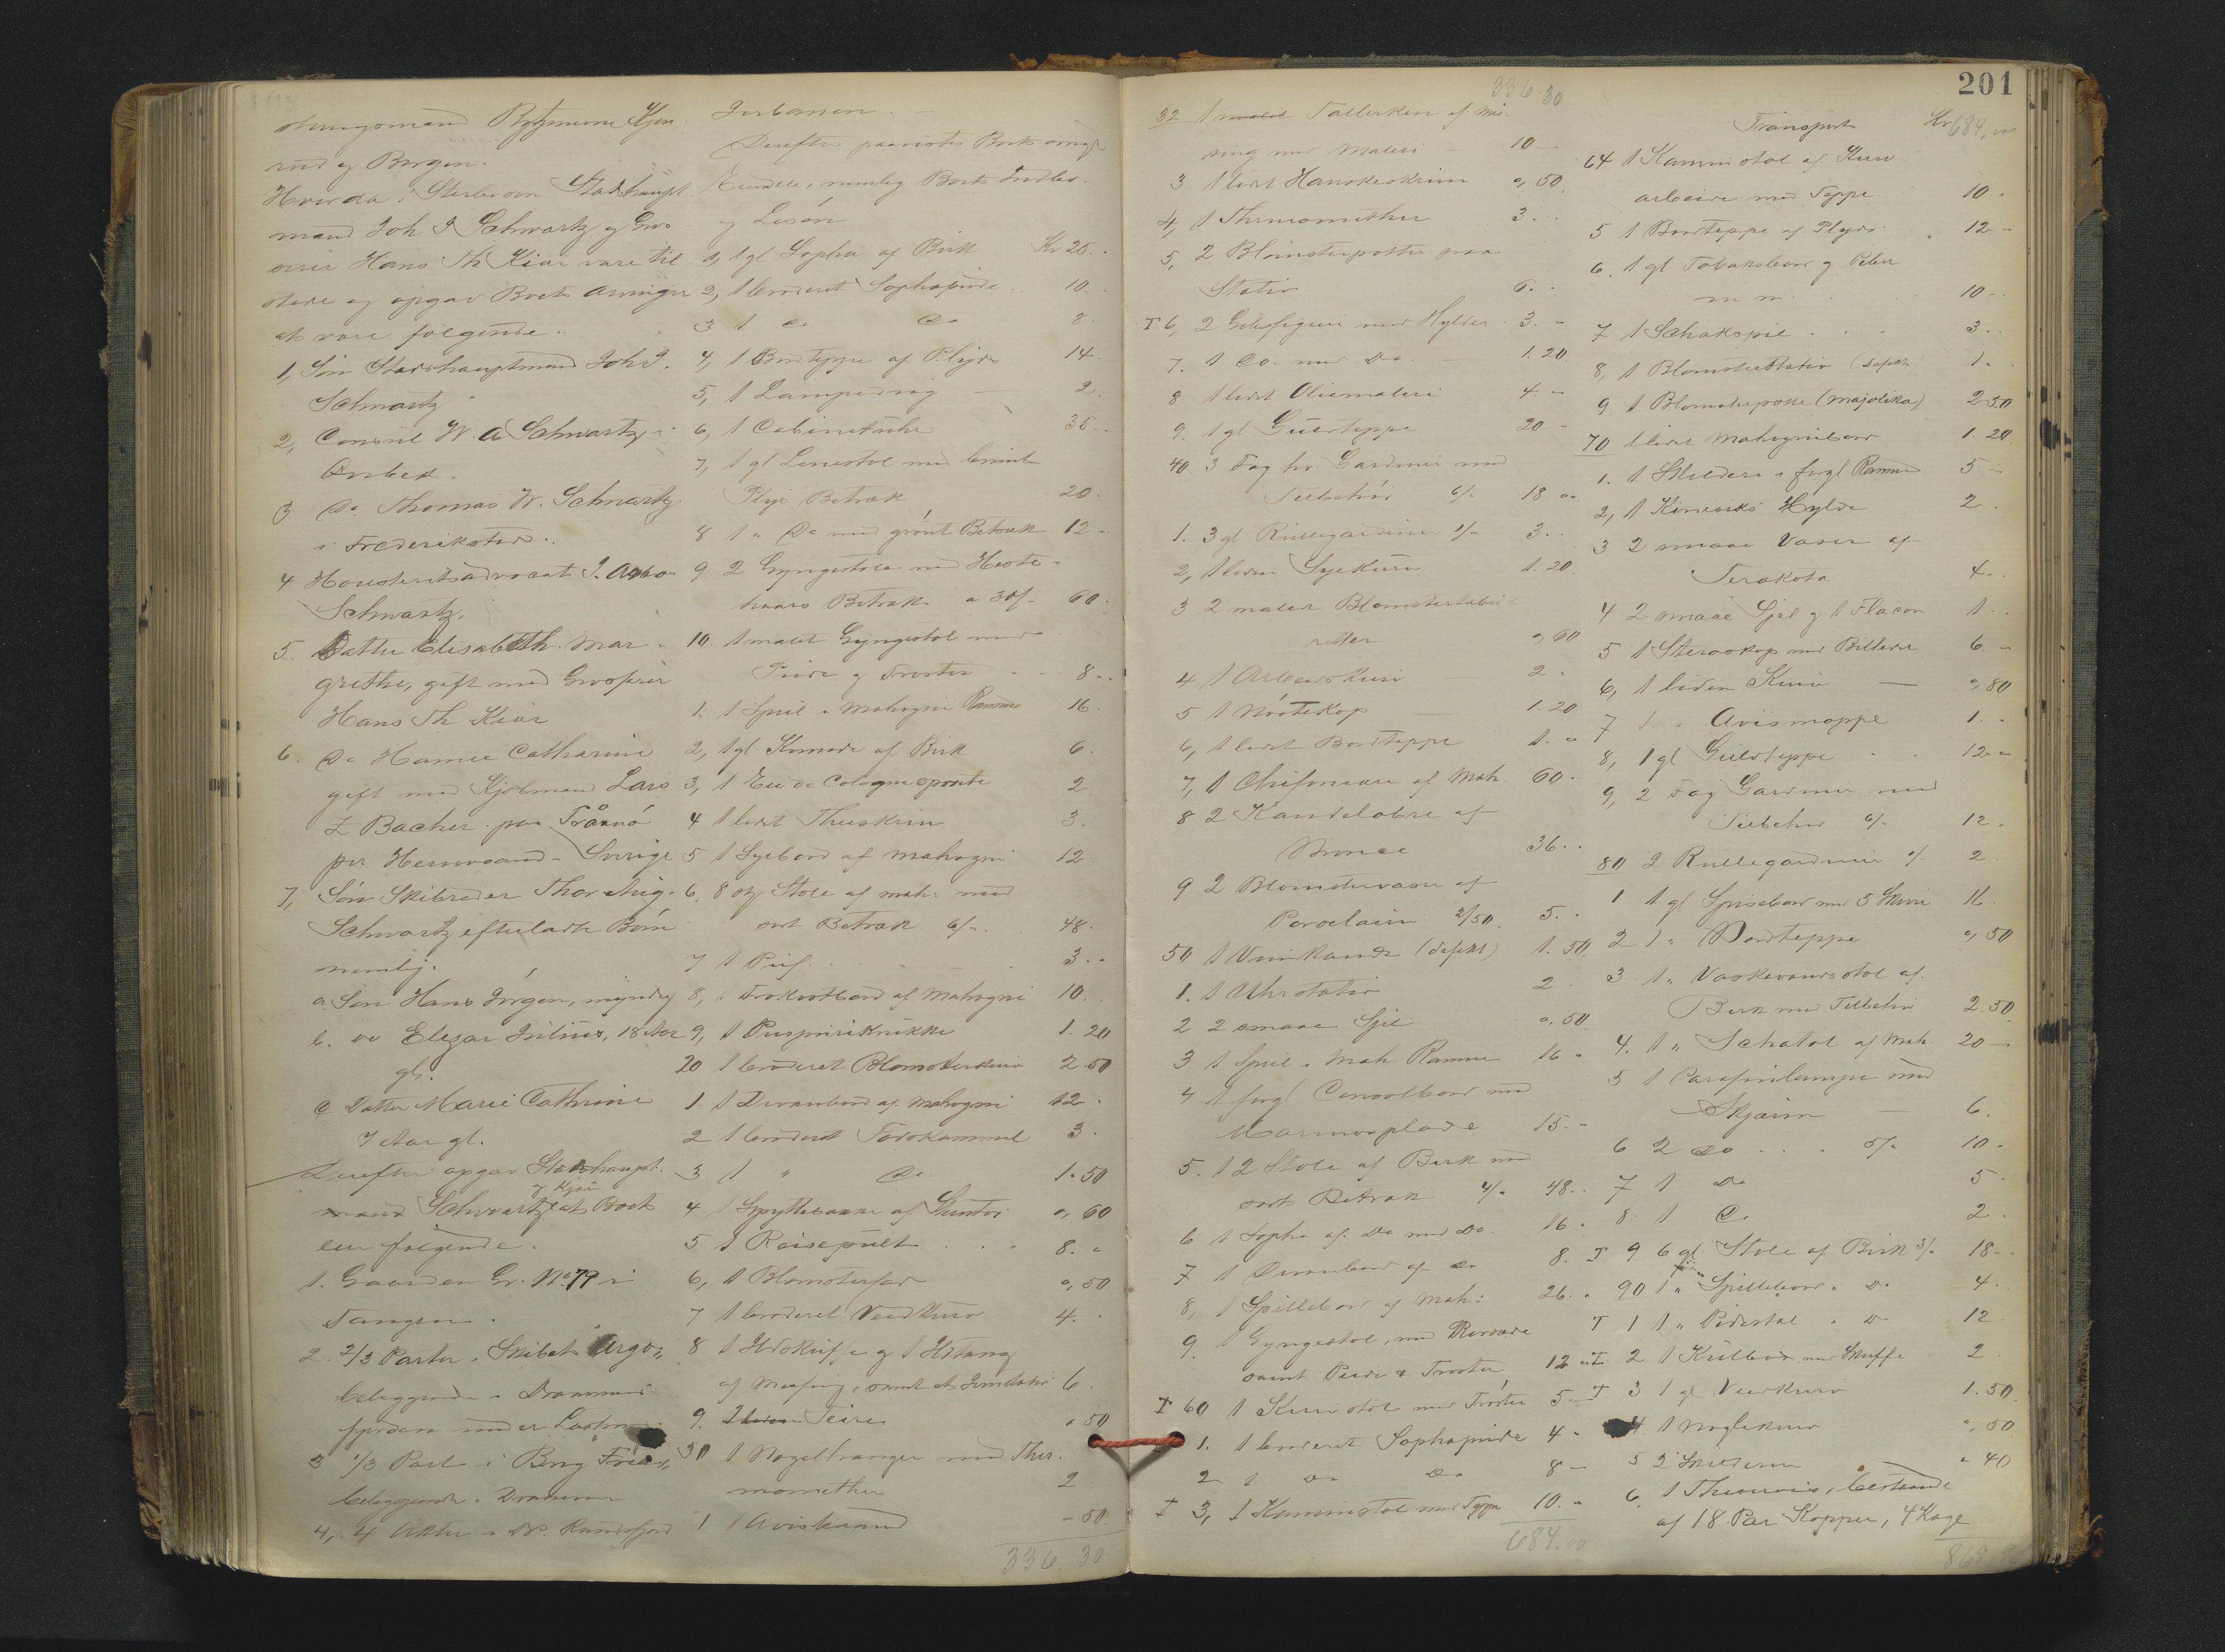 rud og Borgen.
Hvorda i Sterboen Stadshaupt
mand Joh J Schwartz og Gros
serer Hans Th Kiær vare til
stede og opgav Boets Arvinger
at være følgende
1, Søn Stadshauptmand Joh J.
Schwartz
2, Consul W. A Schwartz i
3 Do Thomas W. Schwartz
i Frederikstad.
4 Høiesteretsadvocat J. Arbo
Schwartz.
5. Datter Elisabeth Mar-
grethe, gift med Grosserer
Hans Th Kiær
6. Do Hanna Catharine
gift med Lars
Z Bacher paa
pr Hernøsand - Sverige
7, Søn Skibsreder Thorvald
Schwartz efterladte Børn
nemlig.
a Søn Hans Jørgen, myndig
b. do Elegar Julius, 18 Aar
gl.
c Datter Marie Cathrine
7 Aar gl.
Derefter opgav Stadshaupt-
mand Schwartz og Kjær at Boet
eier følgende.
1. Gaarden Gr. No 79 i
Tangen.
2. 2/3 Parter i Skibet "Argo"
beliggende i Drammens
fjorden under
3 1/3 Part i Brig
beliggende i Drammen
4, 4 Aktier i Randsfjord
Jerbanen
Derefter Boets
Eiendele, nemlig Boets Indbo
og Løsøre
1, 1 gl Sopha af Birk Kr 25.
2, 1 broderet Sophapude 10.
3 1 do do 8.
4, 1 Bordteppe af Plyds 14.
5, 1 Lampedug 2.
6, 1 Cabinetuhr 35
7, 1 gl Lænestol med
Plyds Betræk 20.
8 1 " Do med grønt Betræk 12
9 2 Gyngestole med Heste-
haars Betræk a 30/- 60.
10 1 malet Gyngestol med
Pude og 8.
1. 1 Speil i Mahogni Ramme 16.
2, 1 gl Komode af Birk 6.
3, 1 Eau de Cologne 2
4 1 lidet Theskrin 3.
5 1 Syebord af Mahogni 12
6. 8 Stk Stole af mah. med
sort Betræk 6/- 48.
7 1 Puf 3
8, 1 Frokostbord af Mahogni 10.
9, 1 1.20
20 1 broderet Blomsterkurv 2.50
1. 1 Divanbord af Mahogni 12
2 1 broderet Fodskammel 3.
3 1 " do 1.50
4 1 Spyttebakke af 0,60
5 1 Reisepult 8.
6, 1 Blomsterfad 0,50
7 1 broderet Vedkurv 4.
8 1 Ildskuffe og 1 Ildtang
af Messing, samt et 6.
9. 50
30 1 Nøgelhanger med Ther-
momether 2
1 1 Avisbaand - 50
336.30
336.30
32 1 malet Tallerken af Mes-
sing med Maleri 10
3. 1 lidet Hanskeskrin 0,50
4, 1 Thermomether 3.
5, 2 Blomsterpotter paa
Stativ 6.
T 6, 2 Gibsfigurer med Hylder 3.
7. 1 Do. med Do. 1.20
8 1 lidet Oliemaleri 4
9. 1 gl Gulvteppe 20
40. 3 Fag hv. Gardiner med
Tilbehør 6/- 18
1. 3 gl Rullegardiner 1/- 3.
2, 1 liden Syekurv 1.20
3 2 malede
0,60
4 1 Arbeidskurv 2
5 1 1.20
6, 1 lidet Bordteppe 1.
7, 1 Chifoniere af Mah. 60.
8 2 Kandelabre af
Bronce 36.
9 2 Blomstervaser af
Porcelain 2/50. 5.
50 1 Vinkande (defekt) 1.50
1. 1 Uhrstativ 2
2 2 smaae 0,50
3 1 Speil i Mah Ramme 16
4 1 forgl Consolbord med
Marmorplade 15.
5. 12 Stole af Birk med
sort Betræk 4/- 48.
6 1 Sopha af Do med Do 16.
7 1 Divanbord af Do 8.
8, 1 Spillebord af Mah: 26.
9. 1 Gyngestol, med
samt Pude & 12
T 60 1 Kurvstol med 5
1. 1 broderet Sophapude 4
2 1 Do Do 8
T 3, 1 Kurvstol med Teppe 10.
684.00
201
Transport Kr 684,00
64 1 Kaminstol af Kurv
arbeide med Teppe. 10
5 1 Bordteppe af Plyds 12
6. 1 gl Tobaksbord og Piber
m m. 10
7 1 Schakspil 3
8, 1 Blomsterstativ (defekt) 1.
9. 1 Blomsterpotte (Majolika) 2.50
70 1 lidet Mahognibord 1.20
1. 1 Skilderi i forgl Ramme 5
2, 1 Kinesisk Hylde 2.
3 2 smaae Vaser af
Terakota 4.
4 2 smaae og 1 Flacon 1
5 1 Steroskop med Billeder 6.
6, 1 liden Kurv 0,80
7 1 " Avismappe 1.
8, 1 gl Gulvteppe 12
9, 2 Fag Gardiner med
Tilbehør 6/- 12.
80 2 Rullegardiner 1/- 2
1 1 gl Spisebord med 5 16
2 1 " Bordteppe 0,50
3 1 " Vaskevandsstol af
Birk med Tilbehør 2.50
4. 1 " Schatol af Mah 20
5 1 Parafinlampe med
Skjærm 6.
6 2 do 5/- 10
7 1 Do 5.
8. 1 Do 2.
T 9 6 gl Stole af Birk 3/- 18
90 1 " Spillebord " Do 4.
T 1 1 " Pidestal " Do 12
T 2 1 med Skuffe 2
T 3 1 gl Vedkurv 1.50
4 1 Nøglekurv 0,50
5 2 Skilderier 40
6. 1 Theservis, bestaaende
af 18 Par Kopper, 4 Kage
869